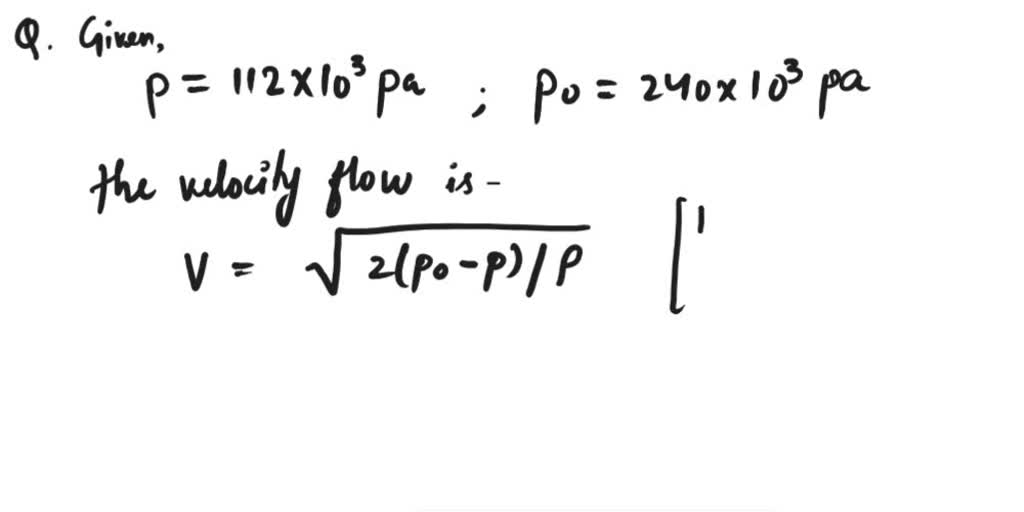 Q. Given,
p = 112×10³ pa ; p₀ = 240×10³ pa
the velocity flow is -
V = √2(p₀-p)/ρ [ '